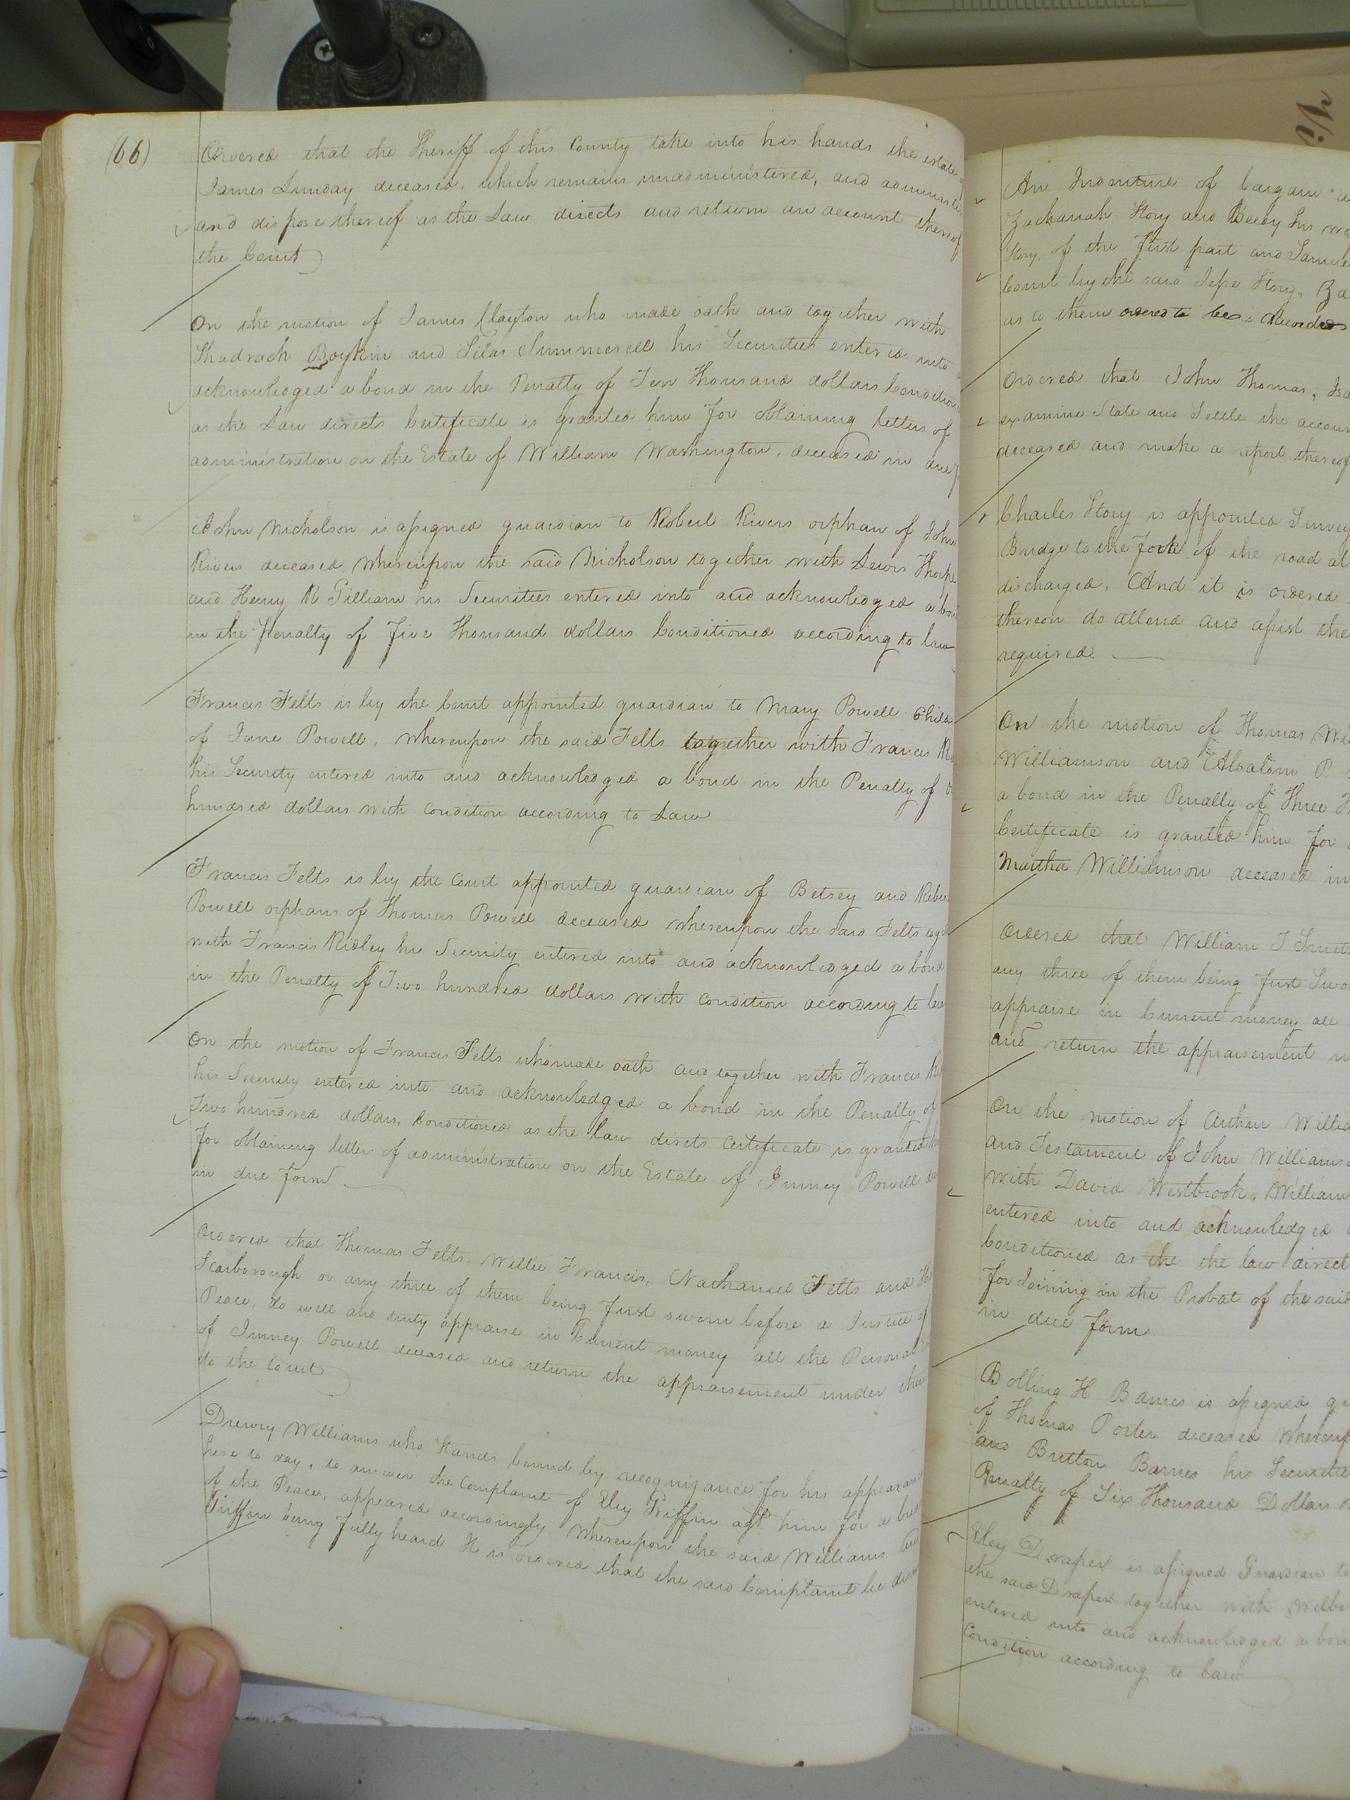 (66)
Ordered that the Sheriff of this County take into his hands the estate
James Sunday deceased, which remains unadministered, and administer
and dispose thereof as the Law directs and return an account thereof
the Court
On the motion of James Clayton who made oath and together with
Shadrach Boykin and Silas Summerell his Securities entered into
acknowledged a bond in the Penalty of Ten Thousand dollars Condition
as the Law directs Certificate is granted him for obtaining letters of
administration on the Estate of William Washington, deceased in due
John Nicholson is assigned guardian to Robert Rivers orphan of John
Rivers deceased, whereupon the said Nicholson together with Lewis Thorpe
and Henry R Gilliam his Securities entered into and acknowledged a bo
in the Penalty of five Thousand dollars Conditioned according to law
Francis Felts is by the Court appointed guardian to Mary Powell Child
of Jane Powell, whereupon the said Felts together with Francis
his Security entered into and acknowledged a bond in the Penalty of
hundred dollars with condition according to Law
Francis Felts is by the Court appointed guardian of Betsey and Rebe
Powell orphans of Thomas Powell deceased whereupon the said Felts tog
with Francis Ridley his Security entered into and acknowledged a bond
in the Penalty of Two hundred dollars with condition according to law
On the motion of Francis Felts who made oath and together with Francis
his Security entered into and acknowledged a bond in the Penalty of
Two hundred dollars, Conditioned as the law directs Certificate is granted
for obtaining letters of administration on the Estate of Jinney Powell
in due form
Ordered that Thomas Felts, Willie Francis, Nathaniel Felts and
Scarborough or any three of them being first sworn before a Justice of
Peace, do well and truly appraise in Current money all the Personal
of Jinney Powell deceased and return the appraisement under their
to the Court
Drewry Williams who Stands bound by recognizance for his appearan
here to day, to answer the Complaint of Eley Griffin agt him for a bre
of the Peace, appeared accordingly Whereupon the said Williams
Griffin being fully heard It is ordered that the said Complaint be
An Indenture of bargain
Zachariah Story and Becey his
Story, of the first part and Samuel
Court by the said Jesse Story,
as to them ordered to be
Ordered that John Thomas,
examine State and Settle the accoun
deceased and make a report thereof
Charles Story is appointed Survey
Bridge to the Fork of the road at
discharged, And it is ordered
thereon do attend and assist the
required.
On the motion of Thomas
Williamson and Absalom P.
a bond in the Penalty of Three
Certificate is granted him for
Martha Williamson deceased in
Ordered that William J
any three of them being first
appraise in Current money all
and return the appraisement
On the motion of Arthur Willia
and Testament of John Williams
with David Westbrook, William
entered into and acknowledged
Conditioned as the the law direct
for Joining in the Probat of the said
in due form
Bolling H Barnes is assigned
of Thomas Porter deceased whereup
and Britton Barnes his Securitie
Penalty of Six Thousand Dollars
Eley Draper is assigned Guardian to
the said Draper together with
entered into and acknowledged a bon
Condition according to Law